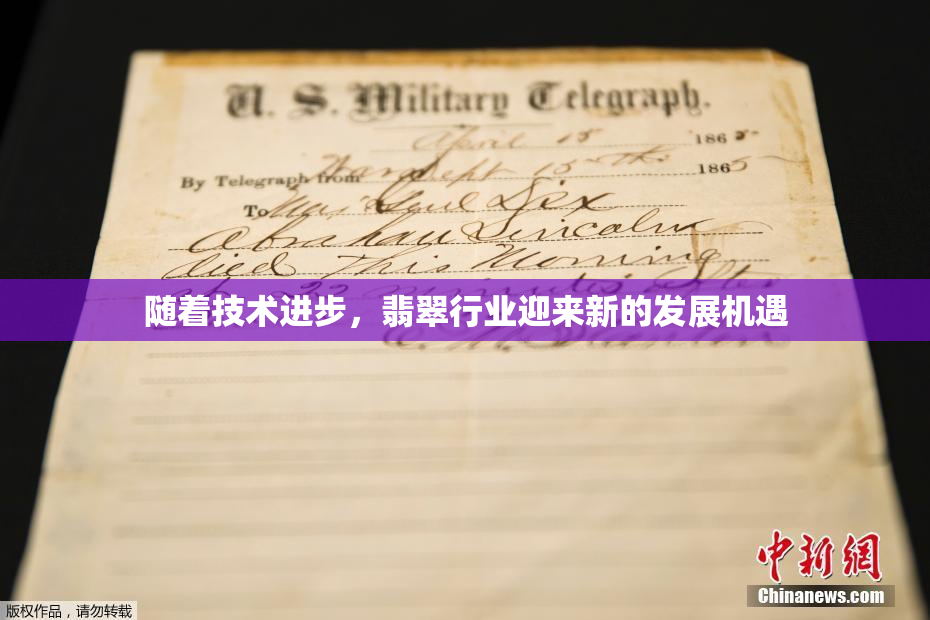 U. S. Military Telegraph.
April 15 1865
By Telegraph from War Dept 15th 1865
To Maj Genl Dix
Abraham Lincoln
died This Morning
22 minutes after
随着技术进步，翡翠行业迎来新的发展机遇
中新网
Chinanews.com
版权作品，请勿转载